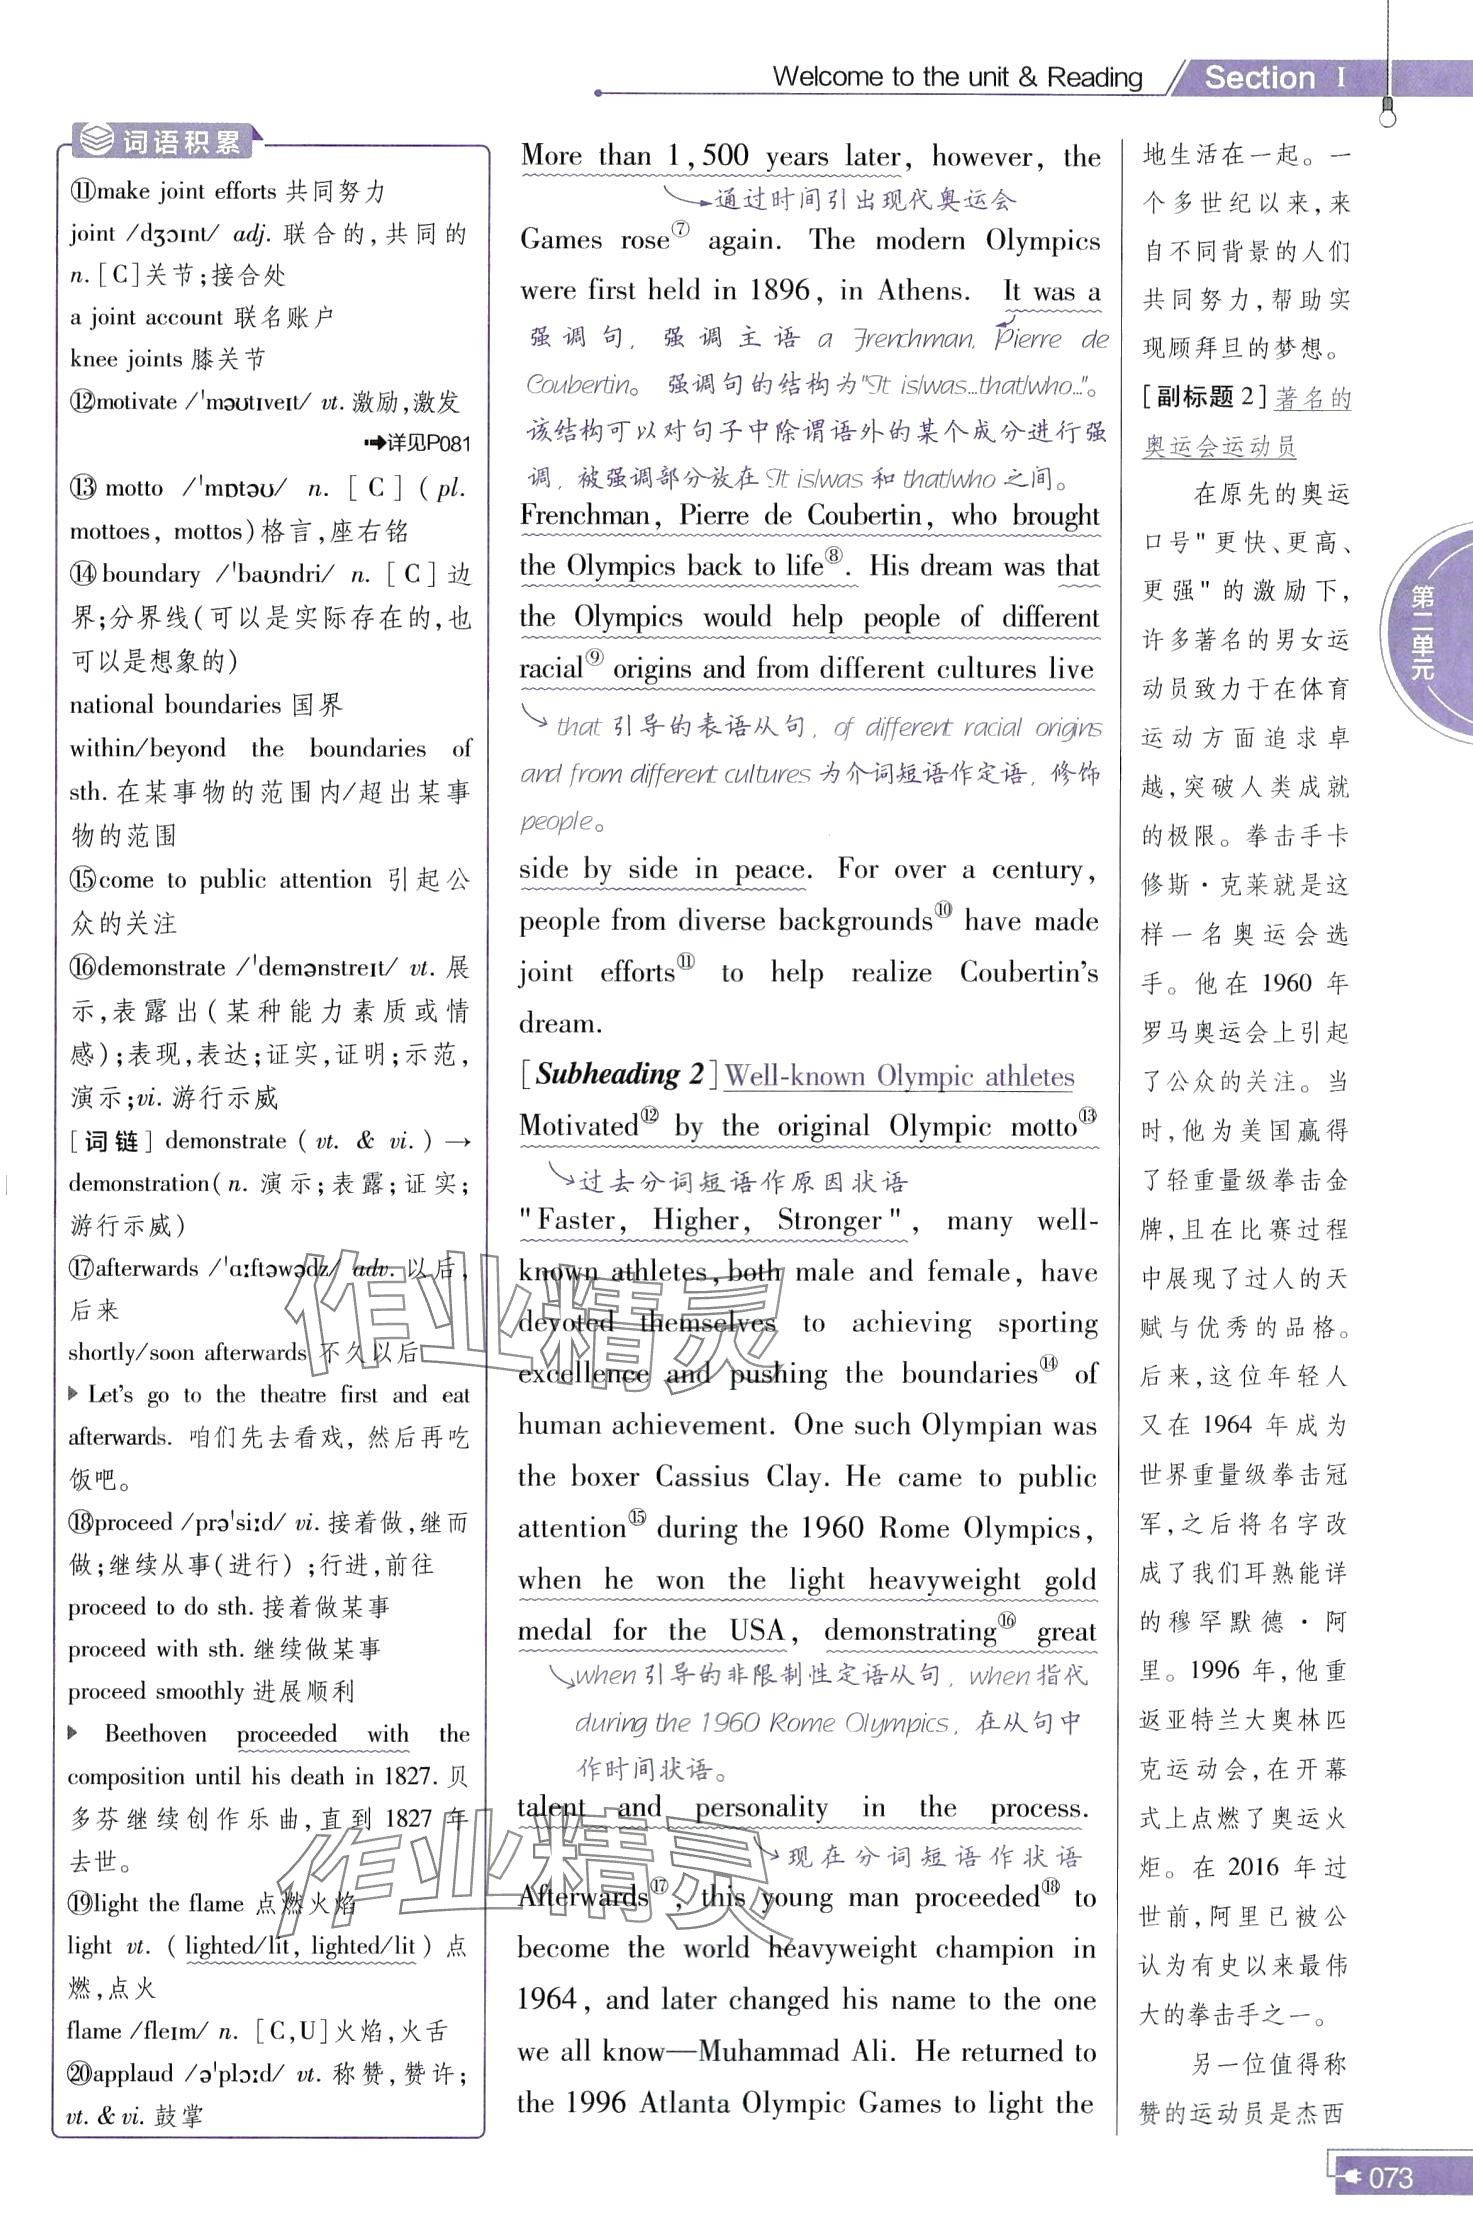 Welcome to the unit & Reading
Section I
词语积累
⑪make joint efforts 共同努力
joint /dʒɔɪnt/ adj. 联合的,共同的
n. [C]关节;接合处
a joint account 联名账户
knee joints 膝关节
⑫motivate /ˈməʊtɪveɪt/ vt. 激励,激发
➡详见P081
⑬ motto /ˈmɒtəʊ/ n. [C] (pl.
mottoes, mottos)格言,座右铭
⑭boundary /ˈbaʊndri/ n. [C]边
界;分界线(可以是实际存在的,也
可以是想象的)
national boundaries 国界
within/beyond the boundaries of
sth. 在某事物的范围内/超出某事
物的范围
⑮come to public attention 引起公
众的关注
⑯demonstrate /ˈdemənstreɪt/ vt. 展
示,表露出(某种能力素质或情
感);表现,表达;证实,证明;示范,
演示;vi. 游行示威
[词链] demonstrate (vt. & vi.) →
demonstration(n. 演示;表露;证实;
游行示威)
⑰afterwards /ˈɑːftəwədz/ adv. 以后,
后来
shortly/soon afterwards 不久以后
Let's go to the theatre first and eat
afterwards. 咱们先去看戏, 然后再吃
饭吧。
⑱proceed /prəˈsiːd/ vi. 接着做,继而
做;继续从事(进行);行进,前往
proceed to do sth. 接着做某事
proceed with sth. 继续做某事
proceed smoothly 进展顺利
Beethoven proceeded with the
composition until his death in 1827. 贝
多芬继续创作乐曲,直到 1827 年
去世。
⑲light the flame 点燃火焰
light vt. (lighted/lit, lighted/lit)点
燃,点火
flame /fleɪm/ n. [C,U]火焰,火舌
⑳applaud /əˈplɔːd/ vt. 称赞,赞许;
vt. & vi. 鼓掌
More than 1,500 years later, however, the
通过时间引出现代奥运会
Games rose⑦ again. The modern Olympics
were first held in 1896, in Athens. It was a
强调句, 强调主语 a Frenchman, Pierre de
Coubertin。 强调句的结构为"It is/was...that/who..."。
该结构可以对句子中除谓语外的某个成分进行强
调, 被强调部分放在 It is/was 和 that/who 之间。
Frenchman, Pierre de Coubertin, who brought
the Olympics back to life⑧. His dream was that
the Olympics would help people of different
racial⑨ origins and from different cultures live
that 引导的表语从句, of different racial origins
and from different cultures 为介词短语作定语, 修饰
people。
side by side in peace. For over a century,
people from diverse backgrounds⑩ have made
joint efforts⑪ to help realize Coubertin's
dream.
[Subheading 2] Well-known Olympic athletes
Motivated⑫ by the original Olympic motto⑬
过去分词短语作原因状语
"Faster, Higher, Stronger", many well-
known athletes, both male and female, have
devoted themselves to achieving sporting
excellence and pushing the boundaries⑭ of
human achievement. One such Olympian was
the boxer Cassius Clay. He came to public
attention⑮ during the 1960 Rome Olympics,
when he won the light heavyweight gold
medal for the USA, demonstrating⑯ great
when引导的非限制性定语从句, when指代
during the 1960 Rome Olympics, 在从句中
作时间状语。
talent and personality in the process.
现在分词短语作状语
Afterwards⑰, this young man proceeded⑱ to
become the world heavyweight champion in
1964, and later changed his name to the one
we all know—Muhammad Ali. He returned to
the 1996 Atlanta Olympic Games to light the
地生活在一起。一
个多世纪以来,来
自不同背景的人们
共同努力,帮助实
现顾拜旦的梦想。
[副标题 2] 著名的
奥运会运动员
在原先的奥运
口号"更快、更高、
更强"的激励下,
许多著名的男女运
动员致力于在体育
运动方面追求卓
越,突破人类成就
的极限。拳击手卡
修斯·克莱就是这
样一名奥运会选
手。他在 1960 年
罗马奥运会上引起
了公众的关注。当
时,他为美国赢得
了轻重量级拳击金
牌,且在比赛过程
中展现了过人的天
赋与优秀的品格。
后来,这位年轻人
又在 1964 年成为
世界重量级拳击冠
军,之后将名字改
成了我们耳熟能详
的穆罕默德·阿
里。1996 年,他重
返亚特兰大奥林匹
克运动会,在开幕
式上点燃了奥运火
炬。在 2016 年过
世前,阿里已被公
认为有史以来最伟
大的拳击手之一。
另一位值得称
赞的运动员是杰西
第二单元
作业精灵
作业精灵
073